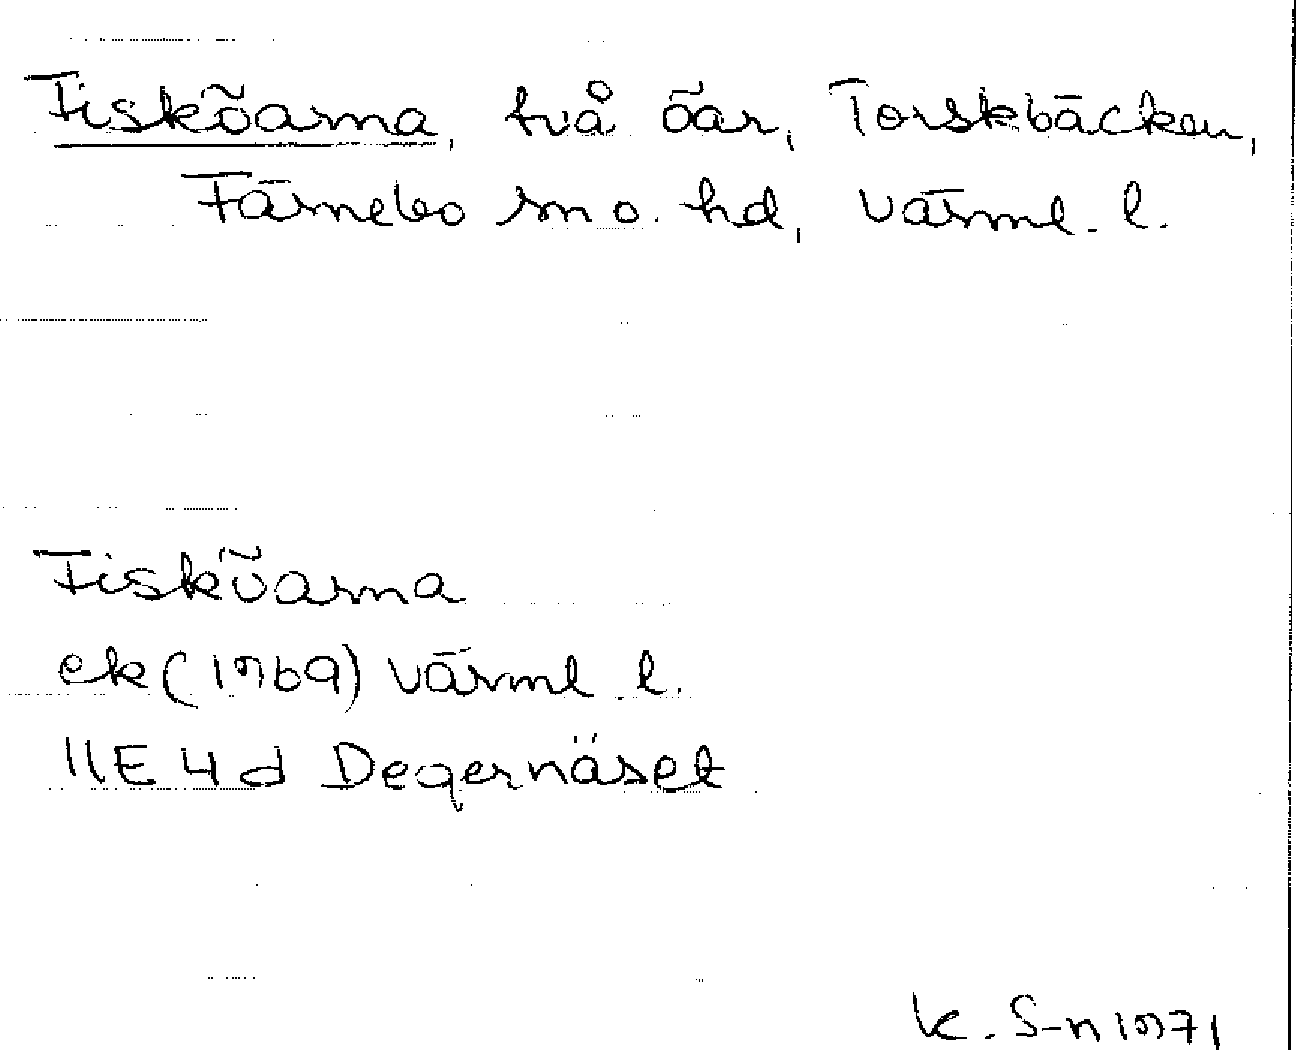 Fisköarna, två öar, Torskbäcken,
Färnebo sn o. hd, Värml. l.
Fisköarna
ek (1969) Värml. l.
11E 4d Degernäset
K. S-n 1971